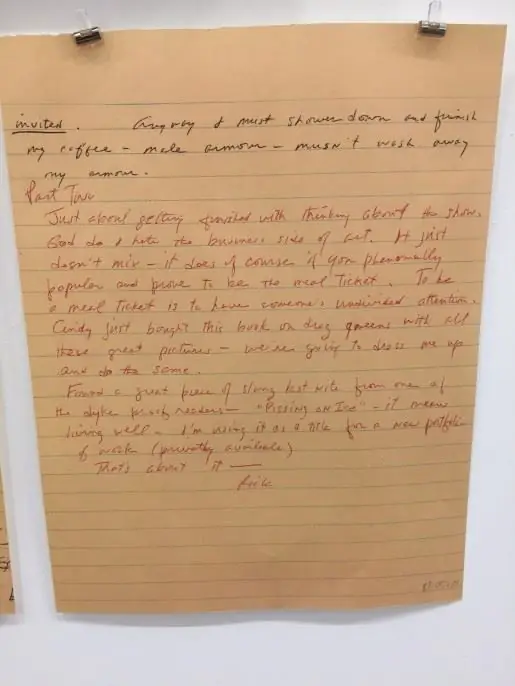 invited. Anyway I must shower down and finish
my coffee - male armour - musn't wash away
my armour.
Part Two
Just about getting finished with thinking about the show.
God do I hate the business side of art. It just
doesn't mix - it does of course if you phenomally
popular and prove to be the meal ticket. To be
a meal ticket is to have someone's undivided attention.
Cindy just bought this book on drag queens with all
these great pictures - we're going to dress me up
and do the same.
Found a great piece of slang last nite from one of
the dyke proof readers - "Pissing on Ice" - it means
living well - I'm using it as a title for a new portfolio
of work (privately available)
That's about it —